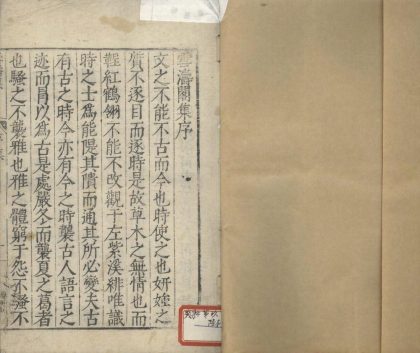 雪濤閣集序
文之不能不古而今也時使之也妍媸之
質不逐目而逐時是故草木之無情也而
鞓紅鶴翎不能不改觀于左紫溪緋唯識
時之士為能隄其隤而通其所必變夫古
有古之時今亦有今之時襲古人語言之
迹而冒以為古是處嚴冬而襲夏之葛者
也騷之不襲雅也雅之體窮于怨不騷不